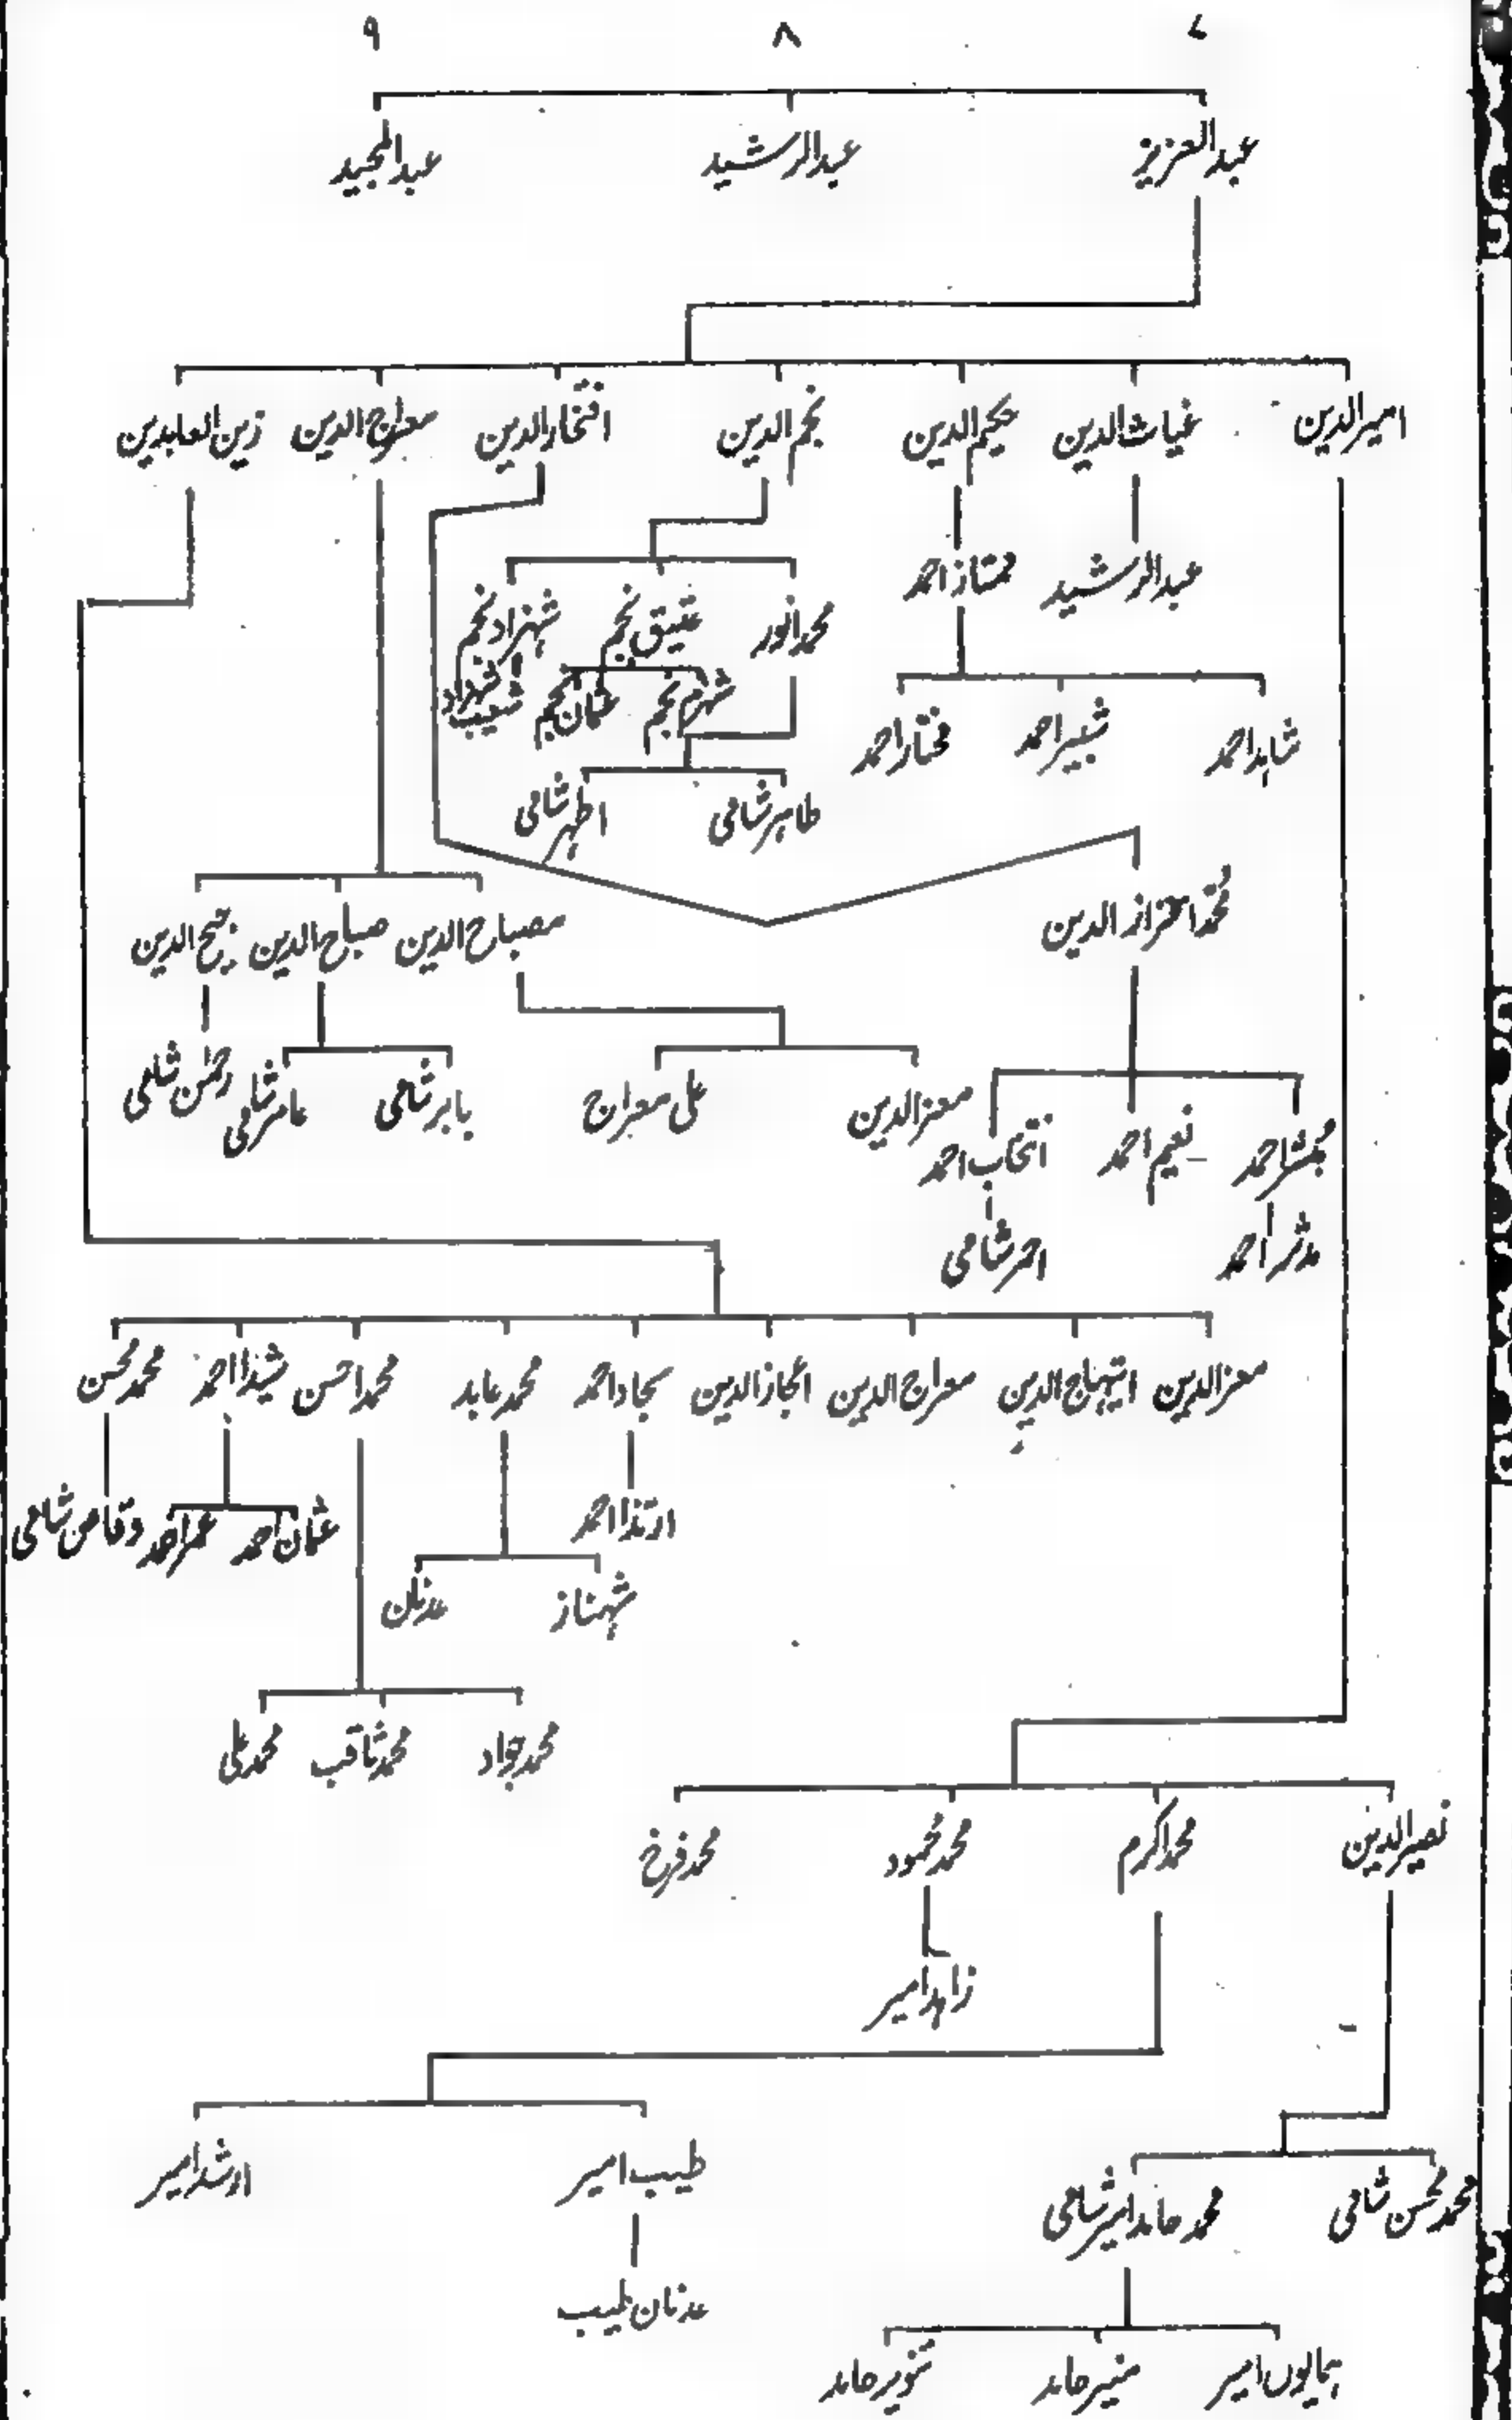 ۷ ۸ ۹
عبدالعزیز عبدالرشید عبدالمجید
امیرالدین غیاث الدین حکیم الدین نجم الدین افتخارالدین معراج الدین زین العابدین
عبدالرشید ممتاز احمد
محمد انور عتیق نجم شہزاد نجم
شاہد احمد شبیر احمد مختار احمد شہرم نجم عثمان نجم شعیب شہزاد
طاہر شامی اطہر شامی
محمد اعزاز الدین
مصباح الدین صباح الدین
معزالدین علی معراج بابر شامی عامر شامی رحمٰن شامی
مبشر احمد نعیم احمد انتخاب احمد
مدثر احمد احمر شامی
معزالدین ابتہاج الدین معراج الدین اعجازالدین سجاد احمد محمد عابد محمد احسن شیدا احمد محمد محسن
ارتذا احمد عثمان احمد عمر احمد وقاص شامی
شہناز عدنان
محمد جواد محمد ثاقب محمد علی
نصیرالدین محمد اکرم محمد محمود محمد فرخ
زاہد امیر
طیب امیر ارشد امیر
محمد محسن شامی محمد حامد امیر شامی
عدنان طیب
ہمایوں امیر منیر حامد تنویر حامد